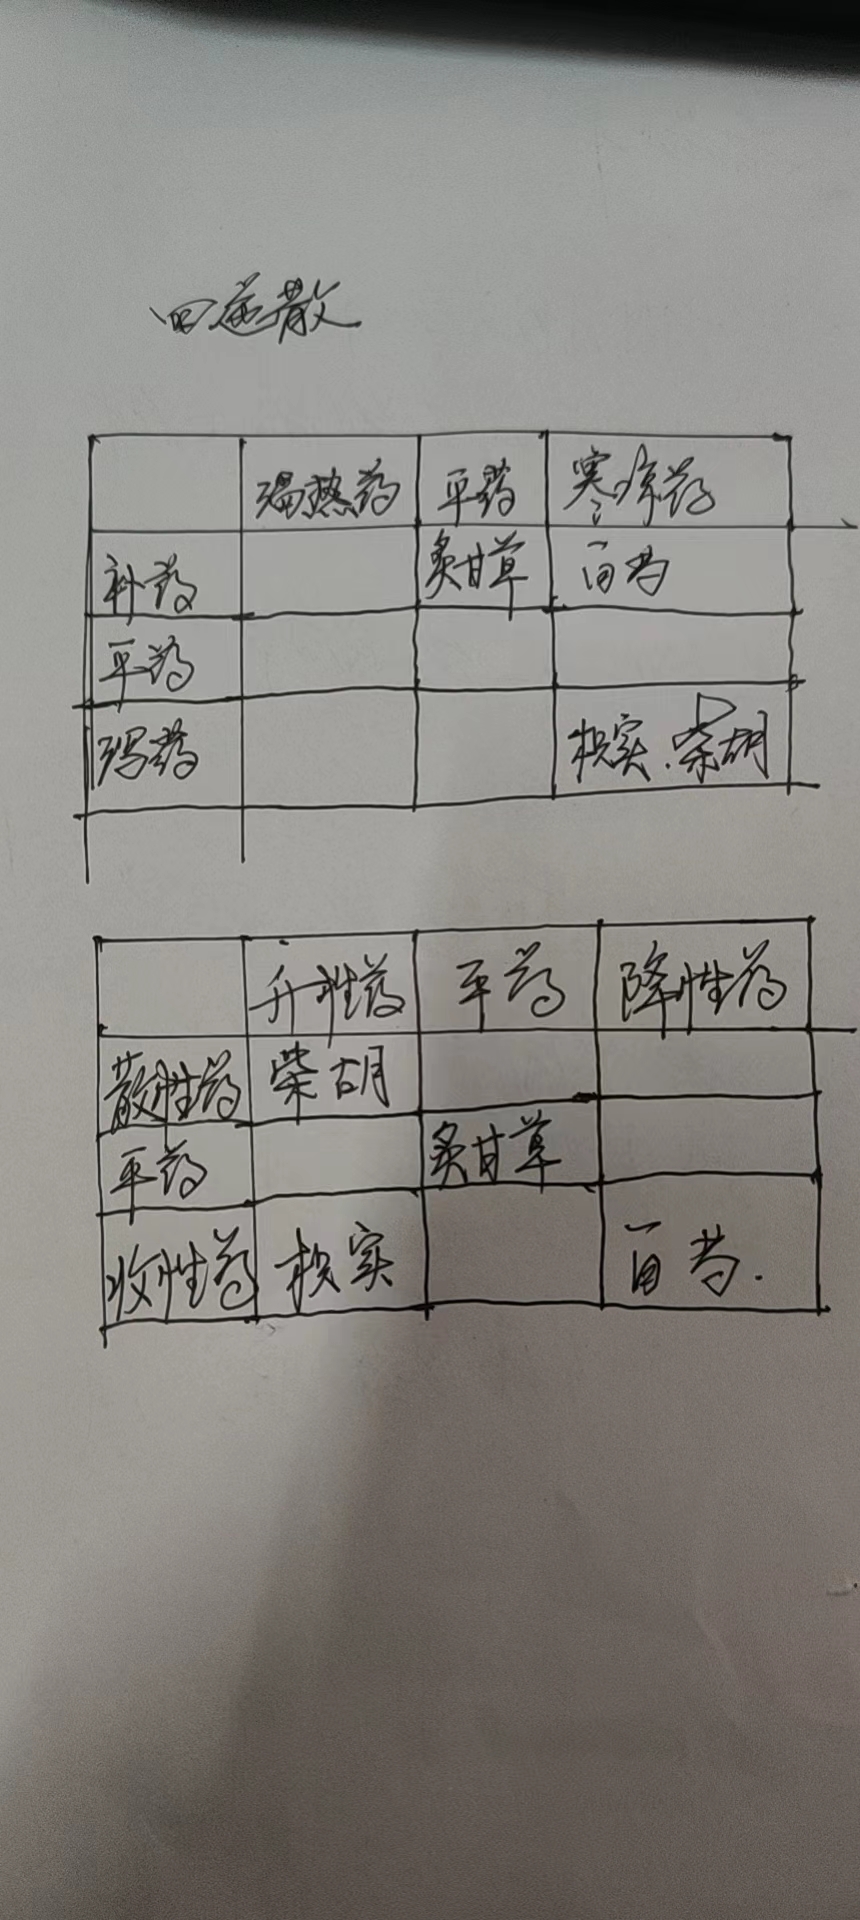 四逆散
温热药 平药 寒凉药
补药 炙甘草 白芍
平药
泻药 枳实.柴胡
升性药 平药 降性药
散性药 柴胡
平药 炙甘草
收性药 枳实 白芍.